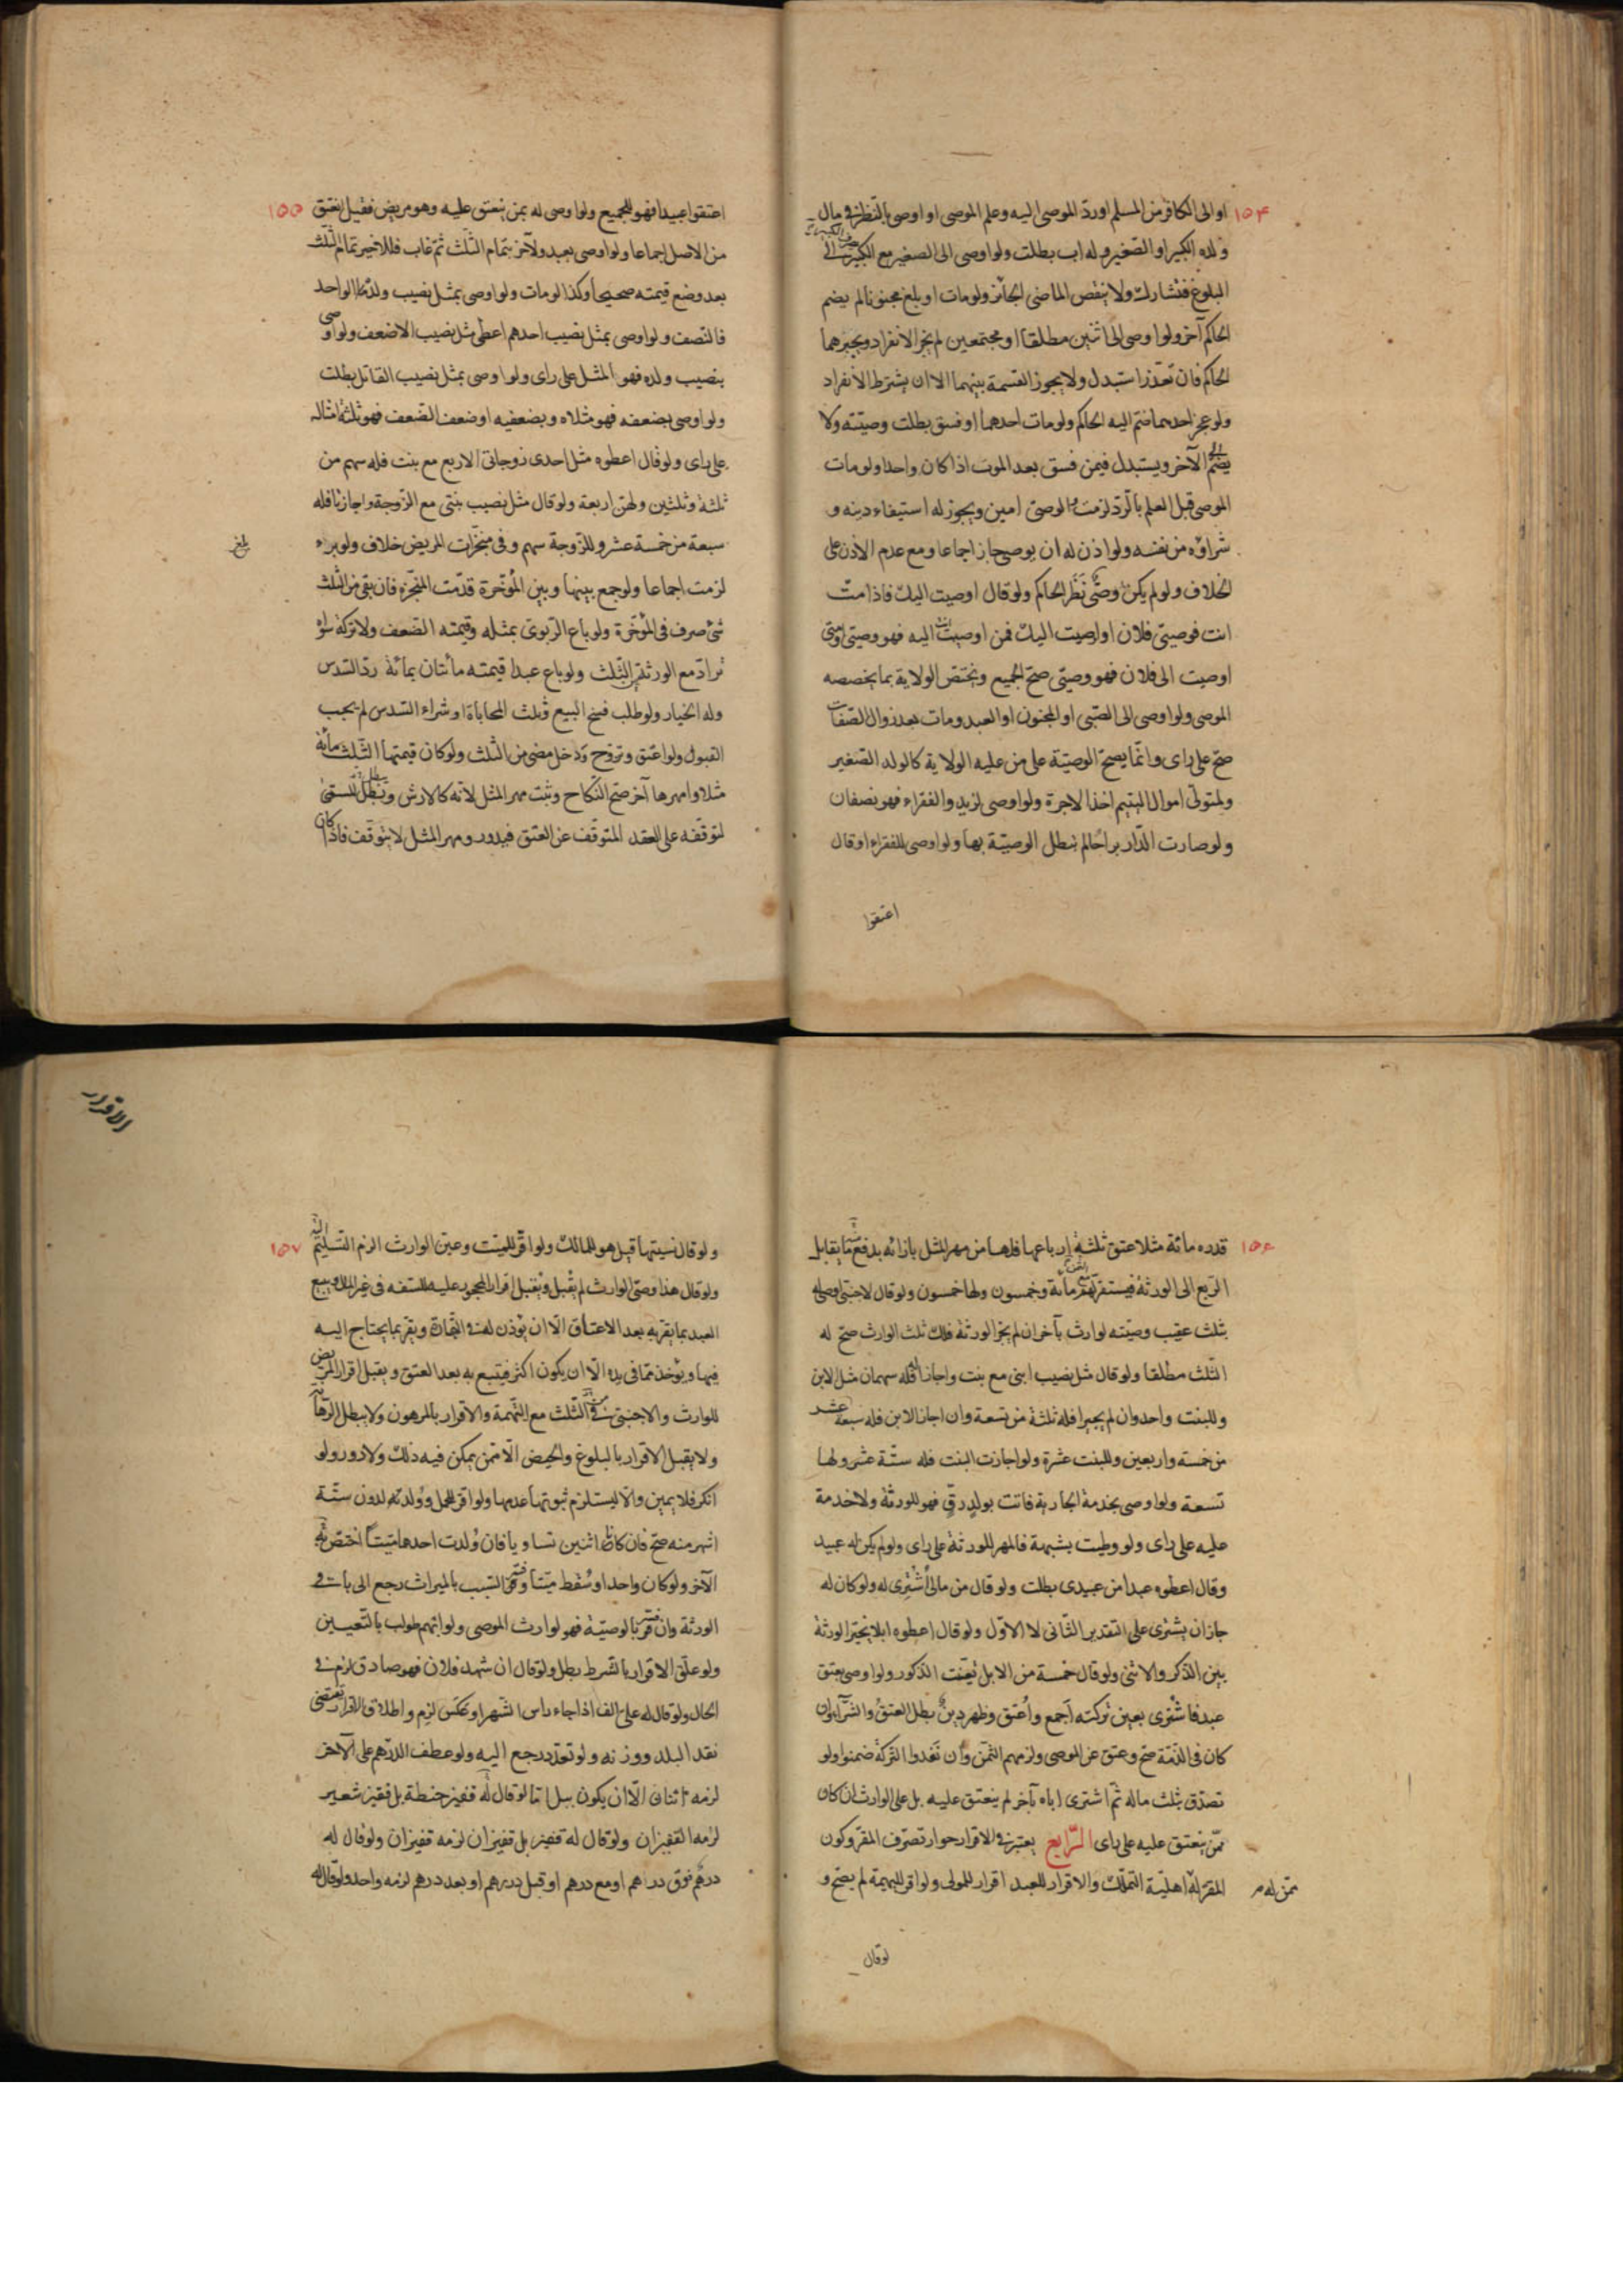 ١٥٤
او الى الكافر من المسلم او ردّ الموصى اليه وعلم الموصى او اوصى بالنّظر فى مال
ولده الكبير او الصّغير وله اب بطلت ولو اوصى الى الصغير مع الكبير الى
البلوغ فتشارك ولا ينقض الماضى الجائز ولو مات او بلغ مجنونا لم يضم
الحاكم آخر ولو اوصى الى اثنين مطلقا او مجتمعين لم يجز الانفراد ويجبرهما
الحاكم فان تعذّر استبدل ولا يجوز القسمة بينهما الا ان يشترط الانفراد
ولو عجز احدهما ضم اليه الحاكم ولو مات احدهما او فسق بطلت وصيّته ولا
يضمّ الى الآخر ويستبدل فيمن فسق بعد الموت اذا كان واحدا ولو مات
الموصى قبل العلم بالرّد لزمت والوصىّ امين ويجوز له استيفاء دينه و
شراؤه من نفسه ولو اذن له ان يوصى جاز اجماعا ومع عدم الاذن على
الخلاف ولو لم يكن وصىّ نَظَر الحاكم ولو قال اوصيت اليك فاذا متّ
انت فوصيّى فلان او اوصيت اليك فمن اوصيت اليه فهو وصيّى او متى
اوصيت الى فلان فهو وصيّى صحّ الجميع وتختصّ الولاية بما يخصصه
الموصى ولو اوصى الى الصّبى او المجنون او العبد ومات بعد زوال الصّفات
صحّ على راى وانّما يصحّ الوصيّة على من عليه الولاية كالولد الصّغير
ولمتولّى اموال اليتيم اخذ الاجرة ولو اوصى لزيد والفقراء فهو نصفان
ولو صارت الدّار براحًا لم تبطل الوصيّة بها ولو اوصى للفقراء او قال
اعتقوا
١٥٥
اعتقوا عبيدا فهو للجميع ولو اوصى له بمن ينعتق عليه وهو مريض فقبل انعتق
من الاصل اجماعا ولو اوصى بعبد ولآخر بتمام الثّلث ثمّ عاب فللاخير تمام الثّلث
بعد وضع قيمته صحيحا وكذا لو مات ولو اوصى بمثل نصيب ولده الواحد
فالنّصف ولو اوصى بمثل نصيب احدهم اعطى مثل نصيب الاضعف ولو اوصى
بنصيب ولده فهو المثل على راى ولو اوصى بمثل نصيب القاتل بطلت
ولو اوصى بضعفه فهو مثلاه وبضعفيه او ضعف الضّعف فهو ثلثة امثاله
على راى ولو قال اعطوه مثل احدى زوجاتى الاربع مع بنت فله سهم من
ثلثة وثلثين ولهنّ اربعة ولو قال مثل نصيب بنتى مع الزّوجة واجازتا فله
سبعة من خمسة عشر وللزّوجة سهم وفى منجّزات المريض خلاف ولو براء
بلغ
لزمت اجماعا ولو جمع بينها وبين المُؤخّرة قدّمت المنجّزة فان بقى من الثّلث
شئ صرف فى المُؤخّرة ولو باع الرّبوىّ بمثله وقيمته الضّعف ولا تركة سواه
ترادّ مع الورثة فى الثّلث ولو باع عبدا قيمته مائتان بمائة ردّ السّدس
وله الخيار ولو طلب فسخ البيع فى ثلث المحاباة او شراء السّدس لم يجب
القبول ولو اعتق وتزوّج ودخل مضى من الثّلث ولو كان قيمتها الثّلث مائة
مثلا وامهرها آخر صحّ النّكاح وثبت مهر المثل لانّه كالارش وتبطل المسمّى
لتوقّفه على العقد المتوقّف عن العتق فيدور ومهر المثل لا يتوقّف فاذا كان
١٥٦
قدره مائة مثلا عتق ثلثة ارباعها فلها من مهر المثل بازائه يدفع منه ما يقابل
الرّبع الى الورثة فيستقرّ لهم مائة وخمسون ولها خمسون ولو قال لاجنبىّ اوصى له
بثلث عقيب وصيّته لوارث بآخر ان لم يجز الورثة فلك ثلث الوارث صحّ له
الثّلث مطلقا ولو قال مثل نصيب ابنى مع بنت واجازا فله سهمان مثل الابن
وللبنت واحد وان لم يجيزا فله ثلثة من تسعة وان اجاز الابن فله سبعة عشر
من خمسة واربعين وللبنت عشرة ولو اجازت البنت فله ستّة عشر ولها
تسعة ولو اوصى بخدمة الجارية فاتت بولدٍ رقٍّ فهو للورثة ولا خدمة
عليه على راى ولو وطيت بشبهة فالمهر للورثة على راى ولو لم يكن له عبيد
وقال اعطوه عبدا من عبيدى بطلت ولو قال من مالى اُشْتُرِى له ولو كان له
جاز ان يشترى على التقدير الثّانى لا الاوّل ولو قال اعطوه ابلا يخيّر الورثة
بين الذّكر والانثى ولو قال خمسة من الابل تعيّنت الذّكور ولو اوصى بعتق
عبد فاشترى بعين تركته اجمع واُعتق وظهر دينٌ بطل العتقُ والشّرآء وان
كان فى الذّمّة صحّ وعتق عن الموصى ولزمهم الثّمن وان نقدوا التّركة ضمنوا ولو
تصدّق بثلث ماله ثمّ اشترى اباه بآخر لم ينعتق عليه بل على الوارث ان كان
ممّن ينعتق عليه على راى الرّابع يعتبر فى الاقرار جواز تصرّف المقرّ وكون
المقرّ له اهليّة التملّك والاقرار للعبد اقرار للمولى ولو اقرّ للبهيمة لم يصحّ و
ممّن له
لو قال
الاقرار
١٥٧
ولو قال نسيتها قيل هو للمالك ولو اقرّ للميّت وعيّن الوارث الزم التّسليم اليه
ولو قال هذا وصىّ الوارث لم يُقبل ويُقبل اقرار المحجور عليه للسّفه فى غير المال ويتبع
العبد بما يقرّ به بعد الاعتاق الّا ان يؤذن له فى التّجارة ويقرّ بما يحتاج اليه
فيها ويؤخذ ممّا فى يده الّا ان يكون اكثر فيتبع به بعد العتق ويقبل اقرار المريض
للوارث والاجنبىّ من الثّلث مع التّهمة والاقرار بالمرهون ولا يبطل الرّهن
ولا يقبل الاقرار بالبلوغ والحيض الّا ممّن يمكن فيه ذلك ولا دور ولو
انكر فلا يمين والّا ليستلزم ثبوتها عدمها ولو اقرّ للحمل ووُلد لدون ستّة
اشهر منه صحّ فان كانا اثنين تساويا فان وُلدت احدهما ميّتا اختصّ به
الآخر ولو كان واحدا وسُقط ميّتا وفسّر السّبب بالميراث رجع الى باقى
الورثة وان فسّر بالوصيّة فهو لوارث الموصى ولو ابهم طولب بالتّعيين
ولو علّق الاقرار بالشّرط بطل ولو قال ان شهد فلان فهو صادق لزم فى
الحال ولو قال له علىّ الف اذا جاء راس الشّهر او عكس لزم واطلاق الاقرار يقتضى
نقد البلد ووزنه ولو تعدّد رجع اليه ولو عطف الدّرهم على الآخر
لزمه اثنان الّا ان يكون ببل امّا لو قال له قفيز حنطة بل قفيز شعير
لزمه القفيزان ولو قال له قفيز بل قفيزان لزمه قفيزان ولو قال له
درهم فوق درهم او مع درهم او قبل درهم او بعد درهم لزمه واحد ولو قال له